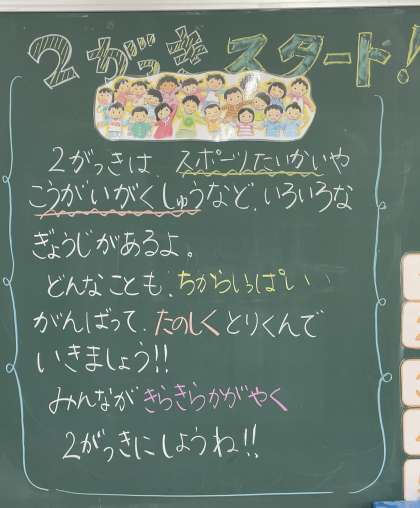 2がっきスタート!
2がっきは、スポーツたいかいや
こうがいがくしゅうなど、いろいろな
ぎょうじがあるよ。
どんなことも、ちからいっぱい
がんばって、たのしくとりくんで
いきましょう!!
みんながきらきらかがやく
2がっきにしようね!!